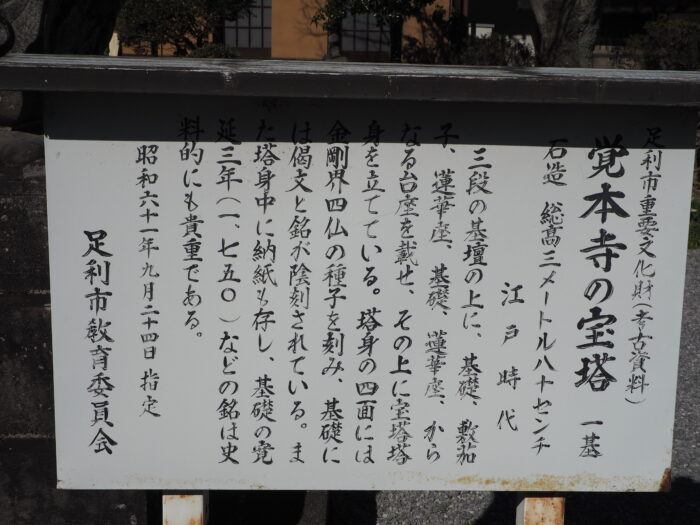 足利市重要文化財(考古資料)
覚本寺の宝塔 一基
石造 総高三メートル八十センチ
江戸時代
三段の基壇の上に、基礎、敷茄
子、蓮華座、基礎、蓮華座、から
なる台座を載せ、その上に宝塔塔
身を立てている。塔身の四面には
金剛界四仏の種子を刻み、基礎に
は偈文と銘が陰刻されている。ま
た塔身中に納紙も存し、基礎の寛
延三年(一、七五〇)などの銘は史
料的にも貴重である。
昭和六十一年九月二十四日指定
足利市教育委員会